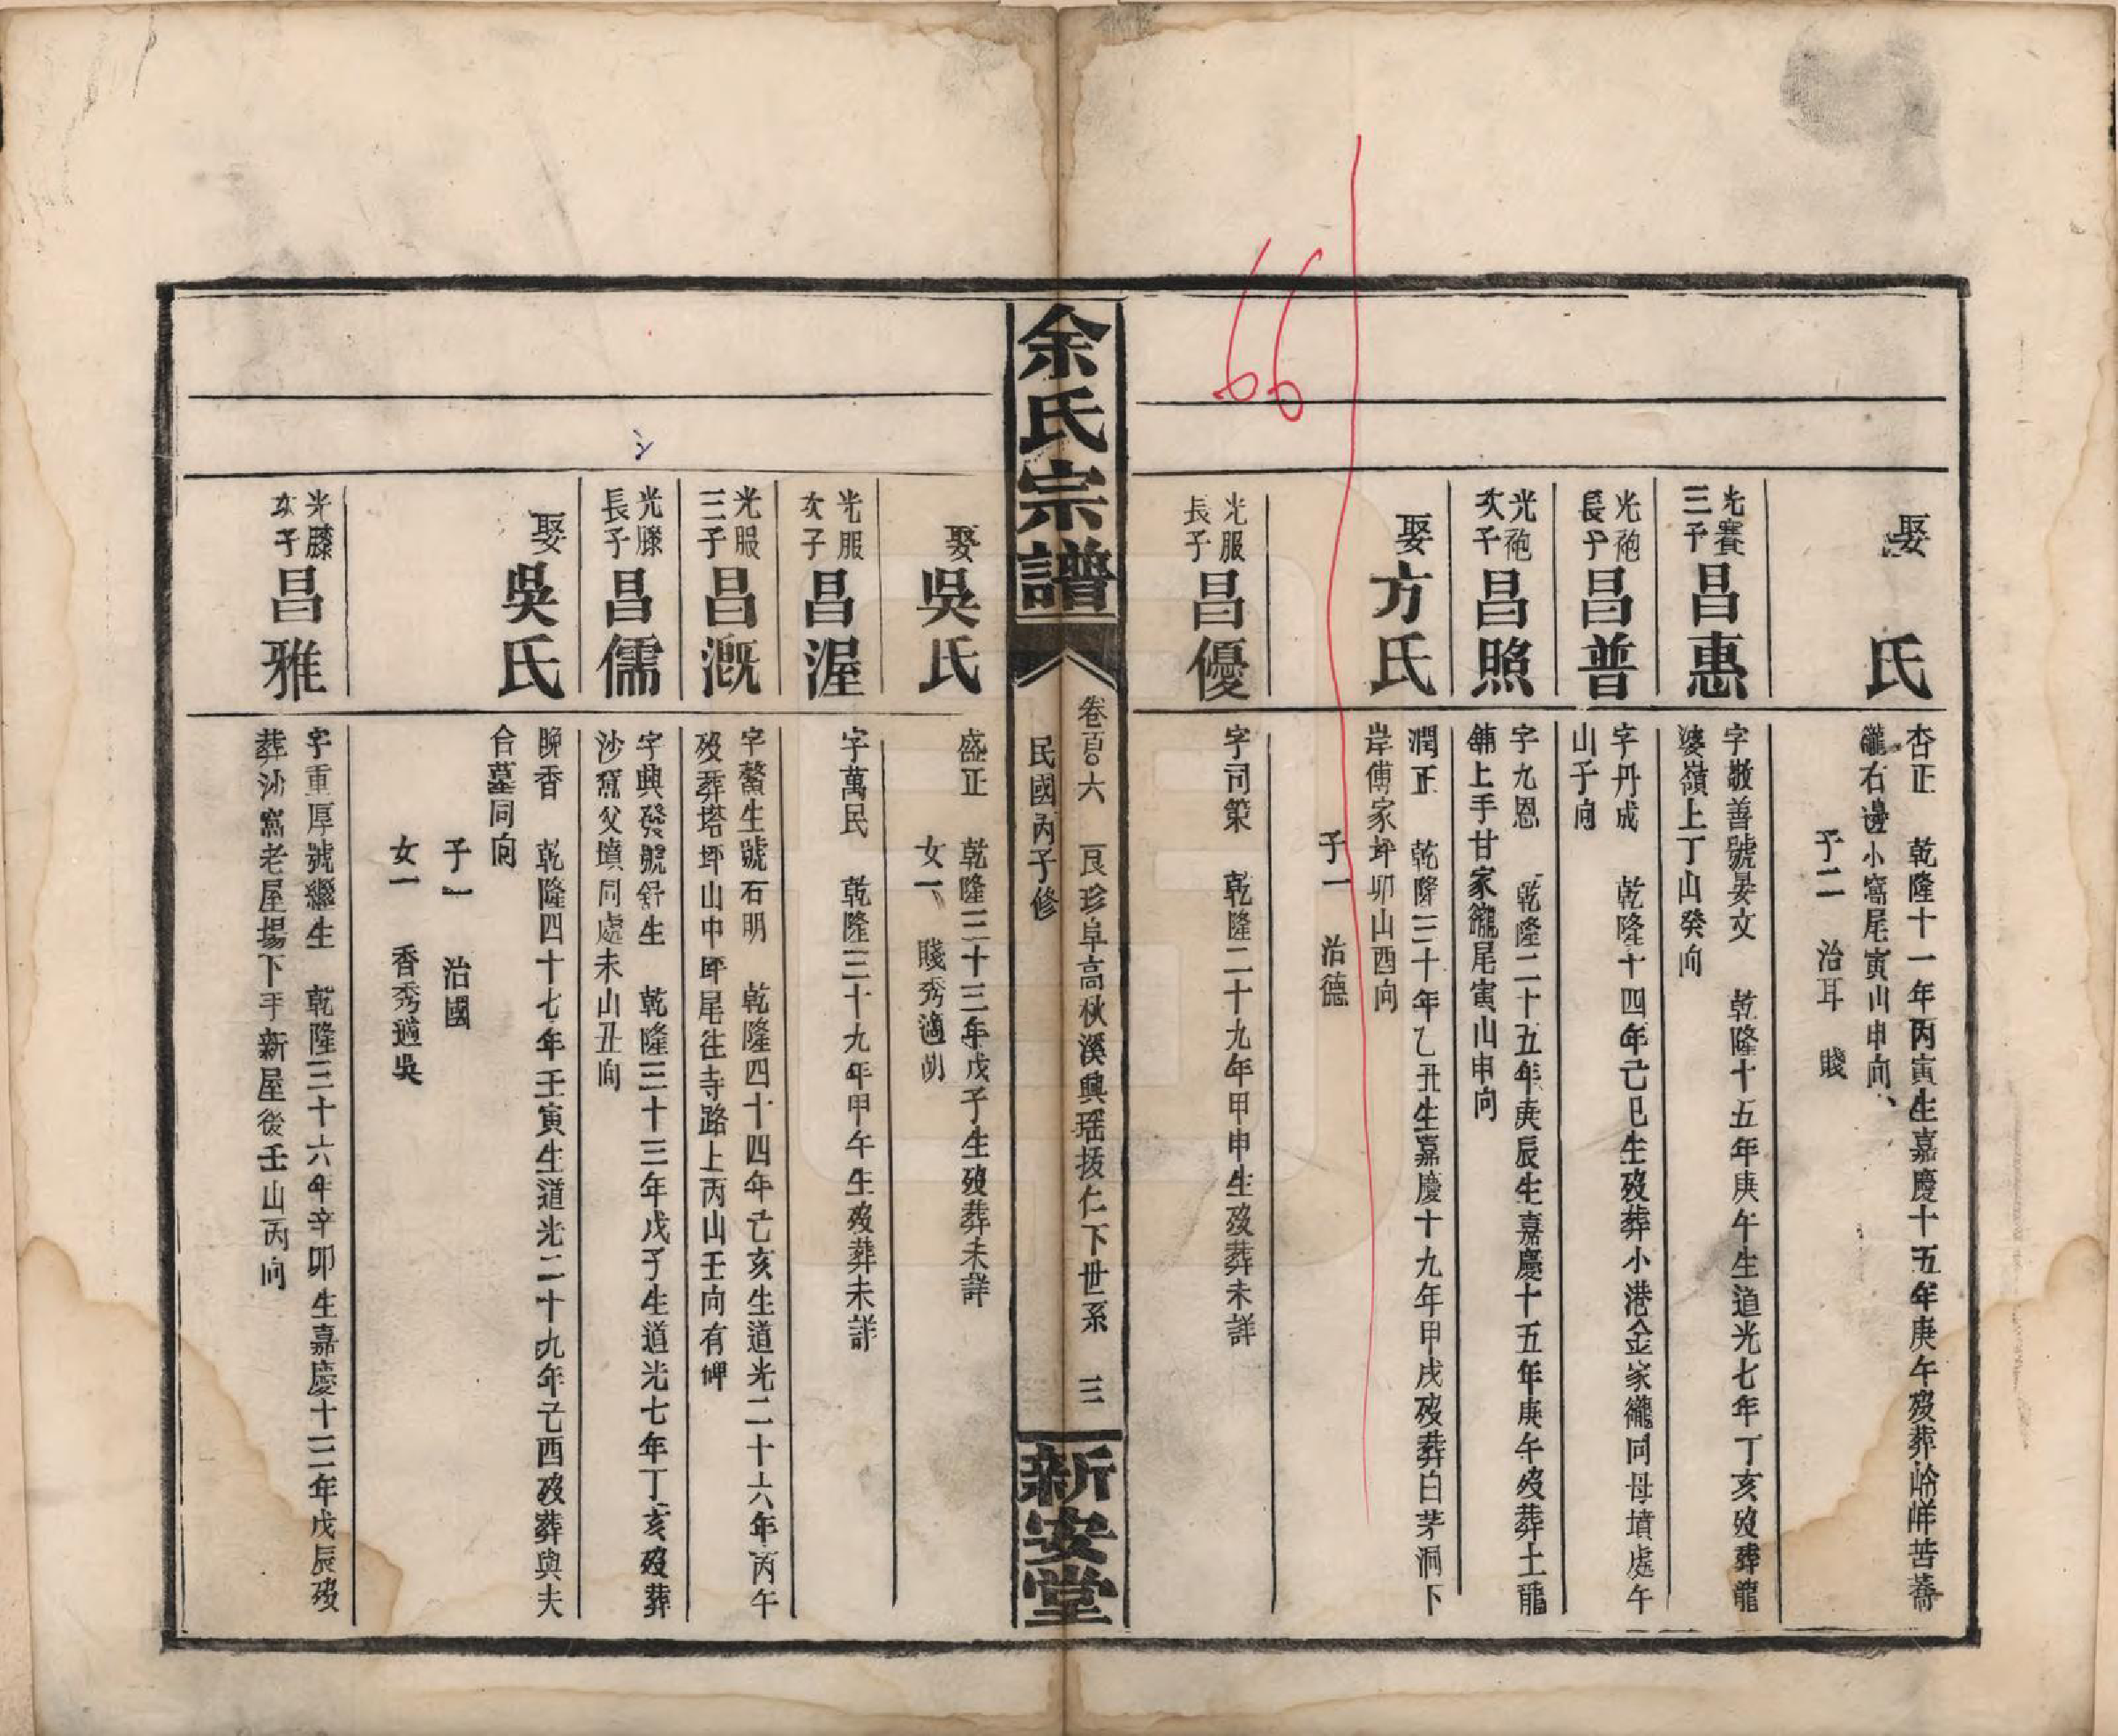 娶 氏
杏正 乾隆十一年丙寅生嘉慶十五年庚午歿葬岭咩苦蕎
龍右邊小窩尾寅山申向
子二 治耳 賤
光賽三子昌惠
字敬善號晏文 乾隆十五年庚午生道光七年丁亥歿葬龍
婆嶺上丁山癸向
光砲長子昌普
字丹成 乾隆十四年己巳生歿葬小港金家龍同母墳處午
山子向
光砲次子昌照
字九恩 乾隆二十五年庚辰生嘉慶十五年庚午歿葬土龍
舖上手甘家龍尾寅山申向
娶方氏
潤正 乾隆三十年乙丑生嘉慶十九年甲戌歿葬白茅洞下
岸傅家坪卯山酉向
子一 治德
光服長子昌優
字司策 乾隆二十九年甲申生歿葬未詳
余氏宗譜
卷百〇六 艮珍阜高秋溪興瑶拔仁下世系 三
民國丙子修
新安堂
娶吳氏
盛正 乾隆三十三年戊子生歿葬未詳
女一 賤秀適胡
光服次子昌渥
字萬民 乾隆三十九年甲午生歿葬未詳
光服三子昌溉
字鰲生號石明 乾隆四十四年己亥生道光二十六年丙午
歿葬塔坪山中坪尾往寺路上丙山壬向有碑
光縢長子昌儒
字興發號舒生 乾隆三十三年戊子生道光七年丁亥歿葬
沙窩父墳同處未山丑向
娶吳氏
晚香 乾隆四十七年壬寅生道光二十九年己酉歿葬與夫
合墓同向
子一 治國
女一 香秀適吳
光縢次子昌雅
字重厚號繼生 乾隆三十六年辛卯生嘉慶十三年戊辰歿
葬沙窩老屋場下手新屋後壬山丙向
66